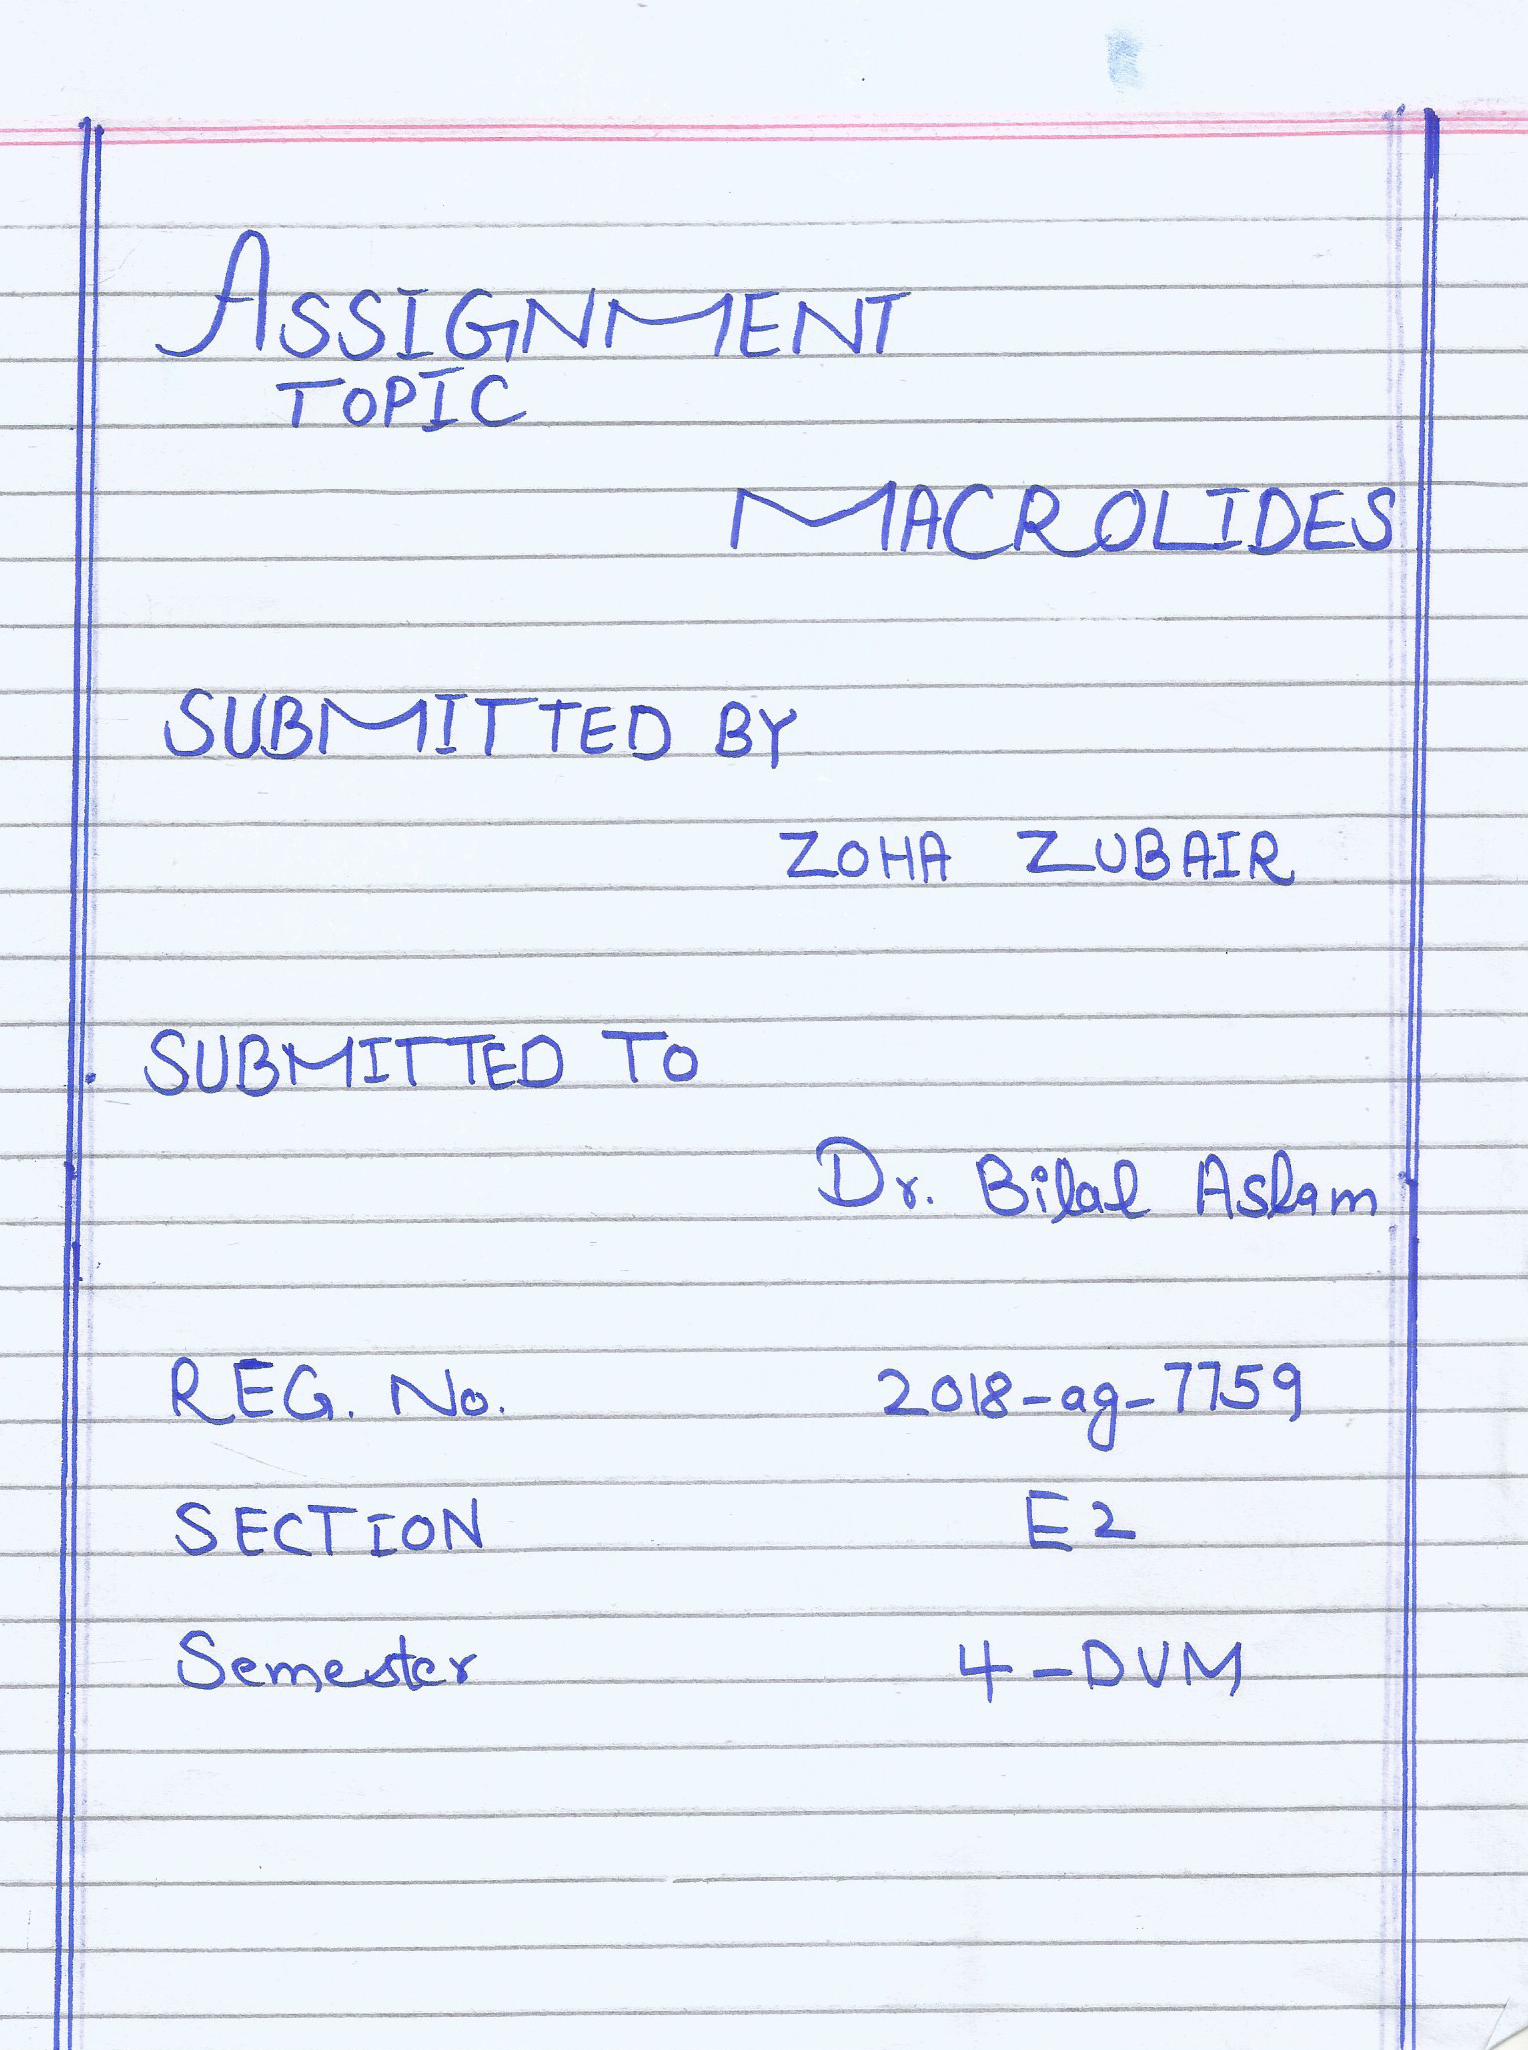 ASSIGNMENT
TOPIC
MACROLIDES
SUBMITTED BY
ZOHA ZUBAIR
SUBMITTED TO
Dr. Bilal Aslam
REG. No. 2018-ag-7759
SECTION E2
Semester 4-DVM